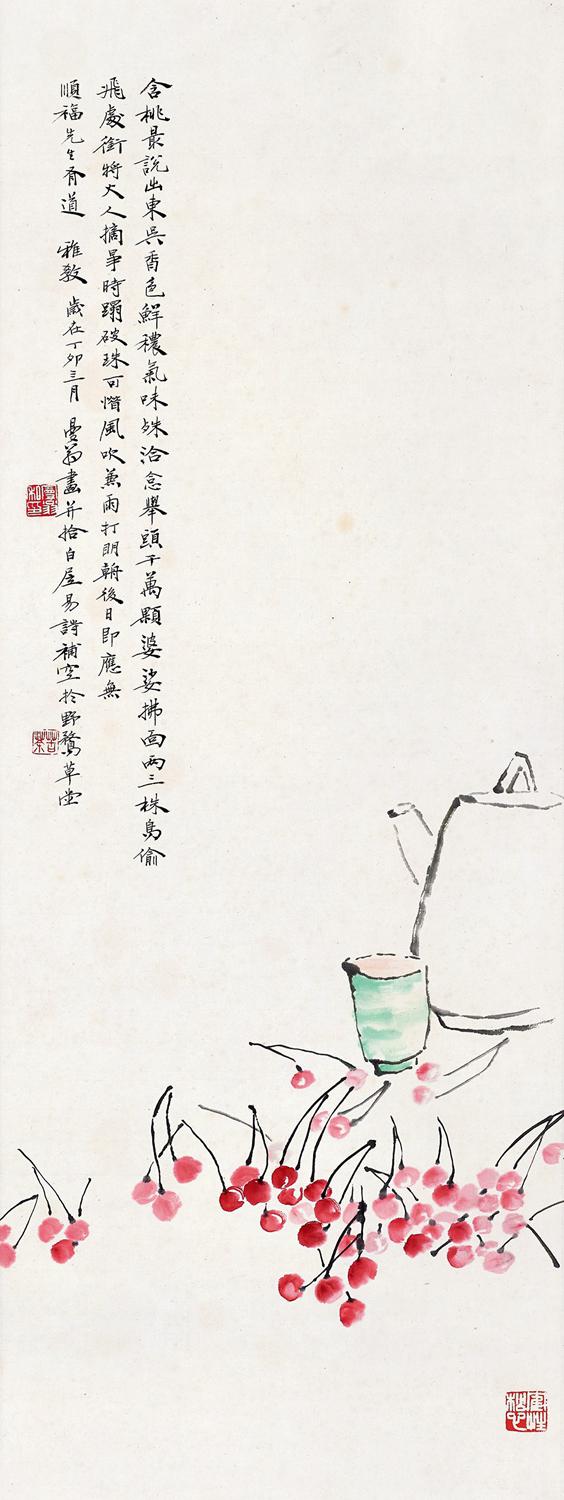 含桃最說出東吳香色鮮穠氣味殊洽念舉頭千萬顆婆娑拂面兩三株鳥偷
飛處銜將火人摘爭時蹋破珠可惜風吹兼雨打明朝後日即應無
順福先生有道 雅教 歲在丁卯三月 曼翁畫并拾白居易詩補空於野鶩草堂